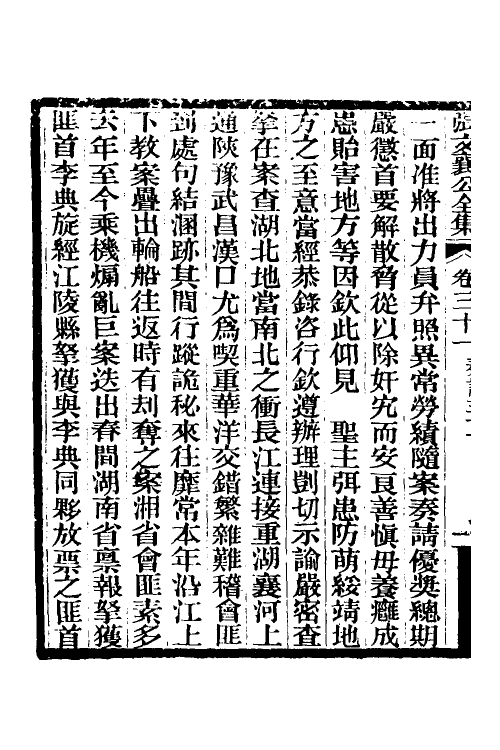 張文襄公全集 卷三十一
一面准將出力員弁照異常勞績隨案奏請優獎總期
嚴懲首要解散脅從以除奸宄而安良善愼毋養癰成
患貽害地方等因欽此仰見 聖主弭患防萌綏靖地
方之至意當經恭錄咨行欽遵辦理剴切示諭嚴密查
拏在案查湖北地當南北之衝長江連接重湖襄河上
通陝豫武昌漢口尤爲喫重華洋交錯繁雜難稽會匪
到處句結溷跡其間行蹤詭秘來往靡常本年沿江上
下教案疊出輪船往返時有刦奪之案湘省會匪素多
去年至今乘機煽亂巨案迭出春間湖南省稟報拏獲
匪首李典旋經江陵縣拏獲與李典同夥放票之匪首